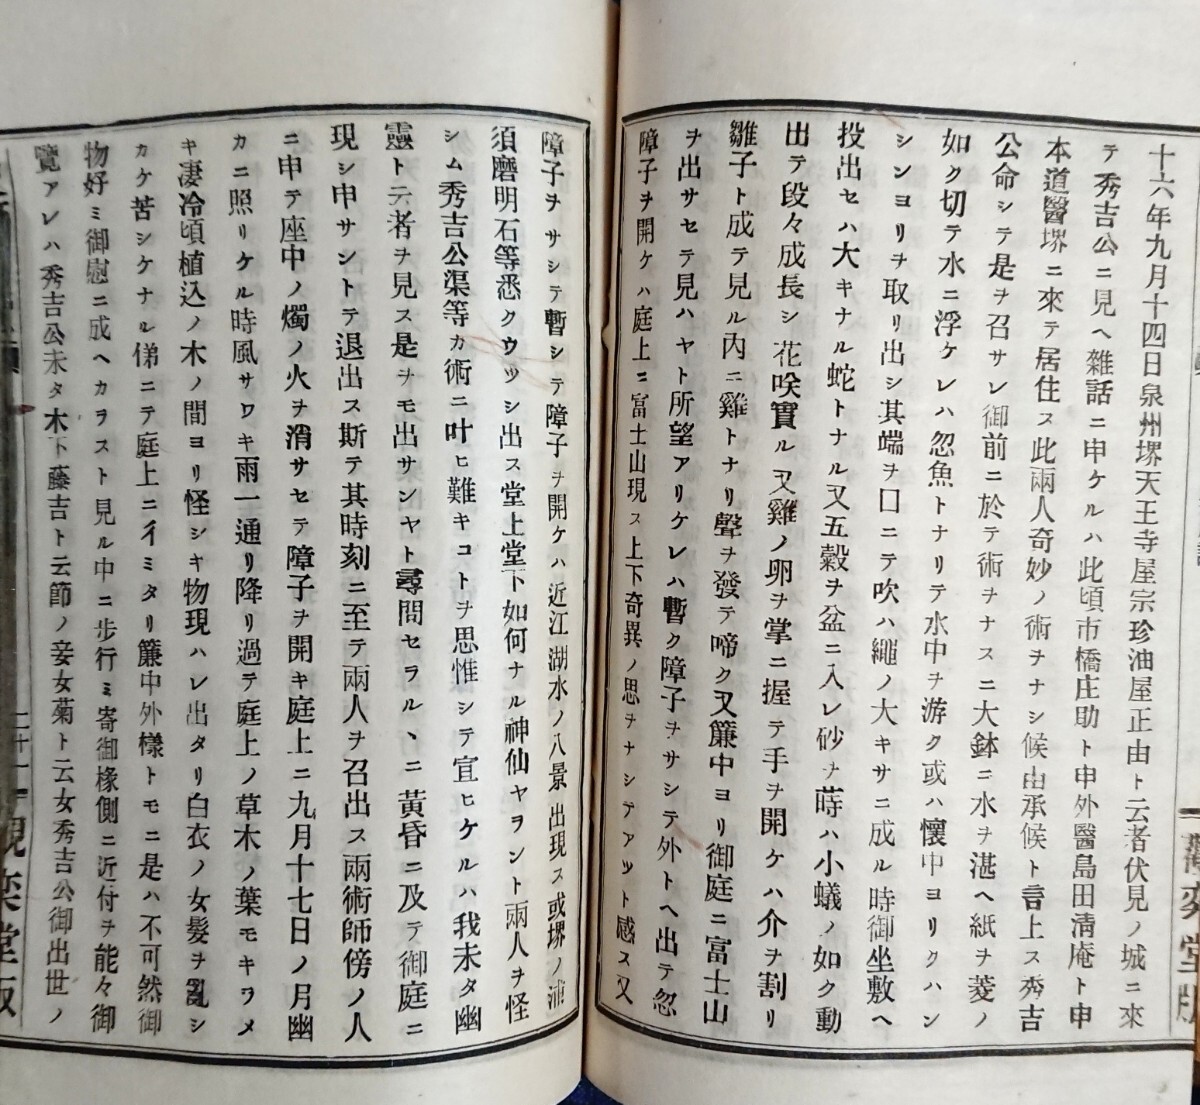 十六年九月十四日泉州堺天王寺屋宗珍油屋正由ト云者伏見ノ城ニ來
テ秀吉公ニ見ヘ雜話ニ申ケルハ此頃市橋庄助ト申外醫島田淸庵ト申
本道醫堺ニ來テ居住ス此兩人奇妙ノ術ヲナシ候由承候ト言上ス秀吉
公命シテ是ヲ召サレ御前ニ於テ術ヲナスニ大鉢ニ水ヲ湛ヘ紙ヲ菱ノ
如ク切テ水ニ浮ケレハ忽魚トナリテ水中ヲ游ク或ハ懷中ヨリクハン
シンヨリヲ取リ出シ其端ヲ口ニテ吹ハ繩ノ大キサニ成ル時御坐敷ヘ
投出セハ大キナル蛇トナル又五穀ヲ盆ニ入レ砂ヲ蒔ハ小蟻ノ如ク動
出テ段々成長シ花咲實ル又雞ノ卵ヲ掌ニ握テ手ヲ開ケハ介ヲ割リ
雛子ト成テ見ル內ニ雞トナリ聲ヲ發テ啼ク又簾中ヨリ御庭ニ富士山
ヲ出サセテ見ハヤト所望アリケレハ暫ク障子ヲサシテ外ヘ出テ忽
障子ヲ開ケハ庭上ニ富士山現ス上下奇異ノ思ヲナシテアツト感ス又
障子ヲサシテ暫シテ障子ヲ開ケハ近江湖水ノ八景出現ス或堺ノ浦
須磨明石等悉クウツシ出ス堂上堂下如何ナル神仙ヤラント兩人ヲ怪
シム秀吉公渠等カ術ニ叶ヒ難キコトヲ思惟シテ宣ヒケルハ我未タ幽
靈ト云者ヲ見ス是ヲモ出サンヤト尋問セラルヽニ黃昏ニ及テ御庭ニ
現シ申サントテ退出ス斯テ其時刻ニ至テ兩人ヲ召出ス兩術師傍ノ人
ニ申テ座中ノ燭ノ火ヲ消サセテ障子ヲ開キ庭上ニ九月十七日ノ月幽
カニ照リケル時風サワキ雨一通リ降リ過テ庭上ノ草木ノ葉モキラメ
キ凄冷頃植込ノ木ノ間ヨリ怪シキ物現ハレ出タリ白衣ノ女髮ヲ亂シ
カケ苦シケナル俤ニテ庭上ニイミタリ簾中外樣トモニ是ハ不可然御
物好ミ御慰ニ成ヘカラスト見ル中ニ步行ミ寄御椽側ニ近付ヲ能々御
覽アレハ秀吉公未タ木下藤吉ト云節ノ妾女菊ト云女秀吉公御出世ノ
二十一